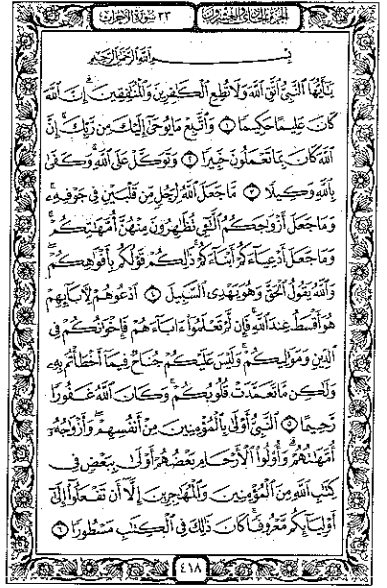 الجزء الحادي والعشرون
٣٣ سورة الأحزاب
بِسْمِ ٱللَّهِ ٱلرَّحْمَٰنِ ٱلرَّحِيمِ
يَٰٓأَيُّهَا ٱلنَّبِيُّ ٱتَّقِ ٱللَّهَ وَلَا تُطِعِ ٱلْكَٰفِرِينَ وَٱلْمُنَٰفِقِينَ ۗ إِنَّ ٱللَّهَ
كَانَ عَلِيمًا حَكِيمًا ١ وَٱتَّبِعْ مَا يُوحَىٰٓ إِلَيْكَ مِن رَّبِّكَ ۚ إِنَّ
ٱللَّهَ كَانَ بِمَا تَعْمَلُونَ خَبِيرًا ٢ وَتَوَكَّلْ عَلَى ٱللَّهِ ۚ وَكَفَىٰ
بِٱللَّهِ وَكِيلًا ٣ مَّا جَعَلَ ٱللَّهُ لِرَجُلٍ مِّن قَلْبَيْنِ فِى جَوْفِهِۦ ۚ
وَمَا جَعَلَ أَزْوَٰجَكُمُ ٱلَّٰٓـِٔى تُظَٰهِرُونَ مِنْهُنَّ أُمَّهَٰتِكُمْ ۚ
وَمَا جَعَلَ أَدْعِيَآءَكُمْ أَبْنَآءَكُمْ ۚ ذَٰلِكُمْ قَوْلُكُم بِأَفْوَٰهِكُمْ ۖ
وَٱللَّهُ يَقُولُ ٱلْحَقَّ وَهُوَ يَهْدِى ٱلسَّبِيلَ ٤ ٱدْعُوهُمْ لِءَابَآئِهِمْ
هُوَ أَقْسَطُ عِندَ ٱللَّهِ ۚ فَإِن لَّمْ تَعْلَمُوٓا۟ ءَابَآءَهُمْ فَإِخْوَٰنُكُمْ فِى
ٱلدِّينِ وَمَوَٰلِيكُمْ ۚ وَلَيْسَ عَلَيْكُمْ جُنَاحٌ فِيمَآ أَخْطَأْتُم بِهِۦ
وَلَٰكِن مَّا تَعَمَّدَتْ قُلُوبُكُمْ ۚ وَكَانَ ٱللَّهُ غَفُورًا
رَّحِيمًا ٥ ٱلنَّبِىُّ أَوْلَىٰ بِٱلْمُؤْمِنِينَ مِنْ أَنفُسِهِمْ ۖ وَأَزْوَٰجُهُۥٓ
أُمَّهَٰتُهُمْ ۗ وَأُو۟لُوا۟ ٱلْأَرْحَامِ بَعْضُهُمْ أَوْلَىٰ بِبَعْضٍ فِى
كِتَٰبِ ٱللَّهِ مِنَ ٱلْمُؤْمِنِينَ وَٱلْمُهَٰجِرِينَ إِلَّآ أَن تَفْعَلُوٓا۟ إِلَىٰٓ
أَوْلِيَآئِكُم مَّعْرُوفًا ۚ كَانَ ذَٰلِكَ فِى ٱلْكِتَٰبِ مَسْطُورًا ٦
٤١٨